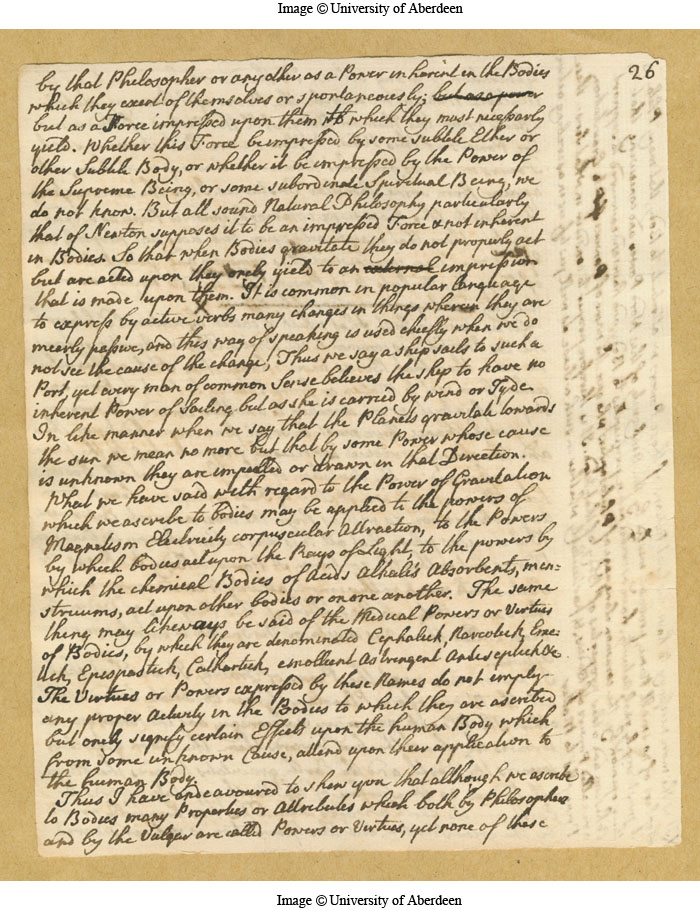 Image © University of Aberdeen
26
by that Philosopher or any other as a Power inherent in the Bodies
which they exert of themselves or spontaneously; but as a power
but as a Force impressed upon them to which they must necessarly
yield. Whether this Force be impressed by some subtile Ether or
other Subtile Body, or whether it be impressed by the Power of
the Supreme Being, or some subordinate Spiritual Being, we
do not know. But all sound Natural Philosophy particularly
that of Newton supposes it to be an impressed Force & not inherent
in Bodies. So that when Bodies gravitate they do not properly act
but are acted upon they only yield to an external impression
that is made upon them. It is common in popular language
to express by active verbs many changes in things wherein they are
meerly passive, and this way of speaking is used chiefly when we do
not see the cause of the change, Thus we say a ship sails to such a
Port, yet every man of common Sense believes the ship to have no
inherent Power of Sailing but as she is carried by wind or Tyde
In like manner when we say that the Planets gravitate towards
the sun we mean no more but that by some Power whose cause
is unknown they are impelled or drawn in that Direction.
What we have said with regard to the Power of Gravitation
which we ascribe to bodies may be applied to the powers of
Magnetism Electricity corpuscular Attraction, to the Powers
by which bodies act upon the Rays of Light, to the powers by
which the chemical Bodies of Acids Alkali's Absorbents, men=
struums, act upon other bodies or on one another. The same
thing may likeways be said of the Medical Powers or Virtues
of Bodies, by which they are denominated Cephalick, Narcotick, Eme=
tick, Epispastick, Cathartick, emollient Astringent Antiseptick &c
The Virtues or Powers expressed by these Names do not imply
any proper Activity in the Bodies to which they are ascribed
but only signify certain Effects upon the human Body which
from some unknown Cause, attend upon their application to
the human Body.
Thus I have endeavoured to shew you that although we ascribe
to Bodies many Properties or Attributes which both by Philosophers
and by the Vulgar are called Powers or Virtues, yet none of these
Image © University of Aberdeen